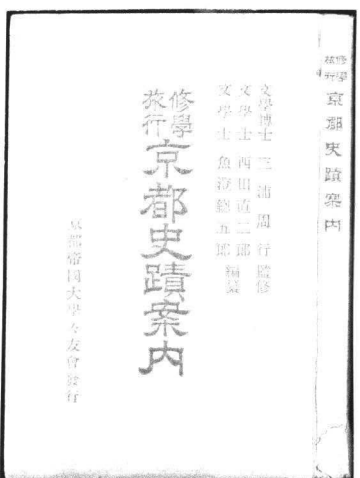 修學旅行 京都史蹟案内
文學博士 三浦周行 監修
文學士 西田直二郎
文學士 魚澄惣五郎 編纂
修學旅行 京都史蹟案内
京都帝國大學々友會發行